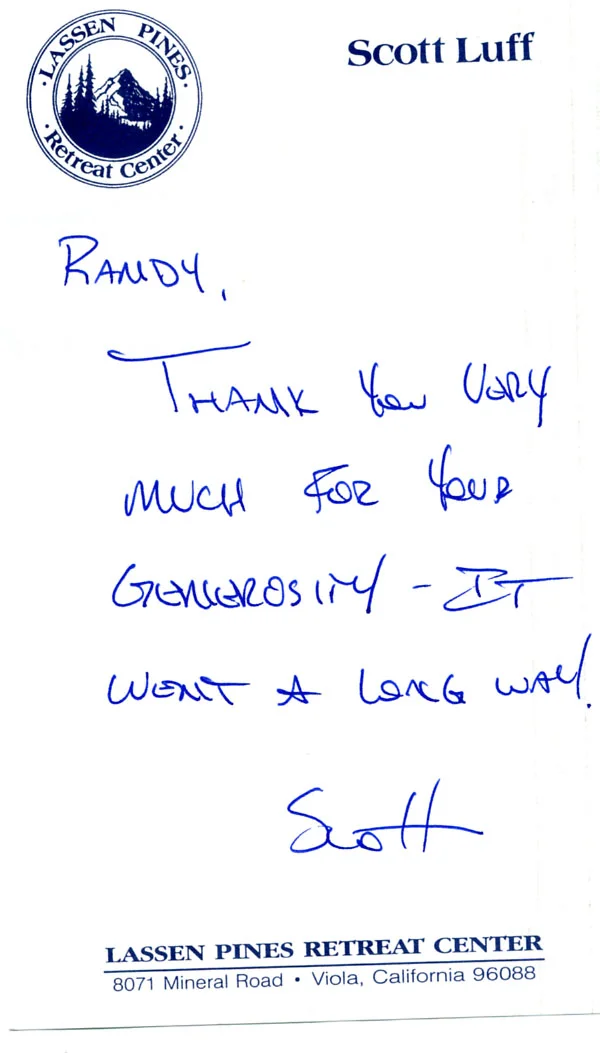 · LASSEN PINES ·
Retreat Center
Scott Luff
RANDY,
THANK YOU VERY
MUCH FOR YOUR
GENEROSITY - IT
WENT A LONG WAY.
Scott
LASSEN PINES RETREAT CENTER
8071 Mineral Road • Viola, California 96088